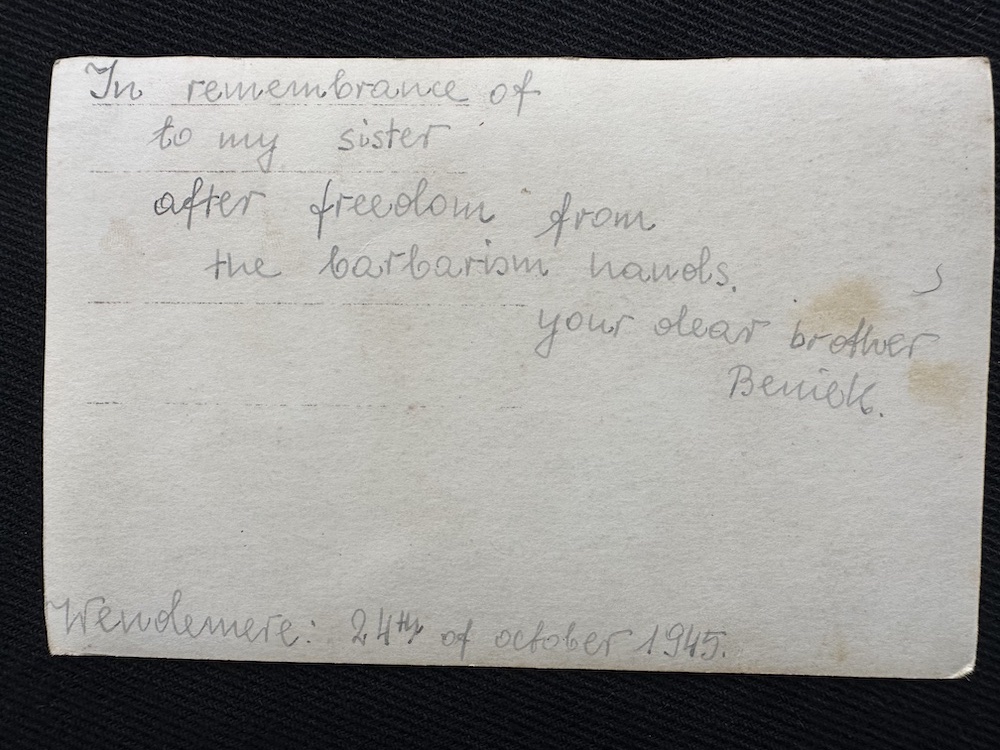 In remembrance of
to my sister
after freedom from
the barbarism hands.
your dear brother
Beniek.
Wendemere: 24th of october 1945.